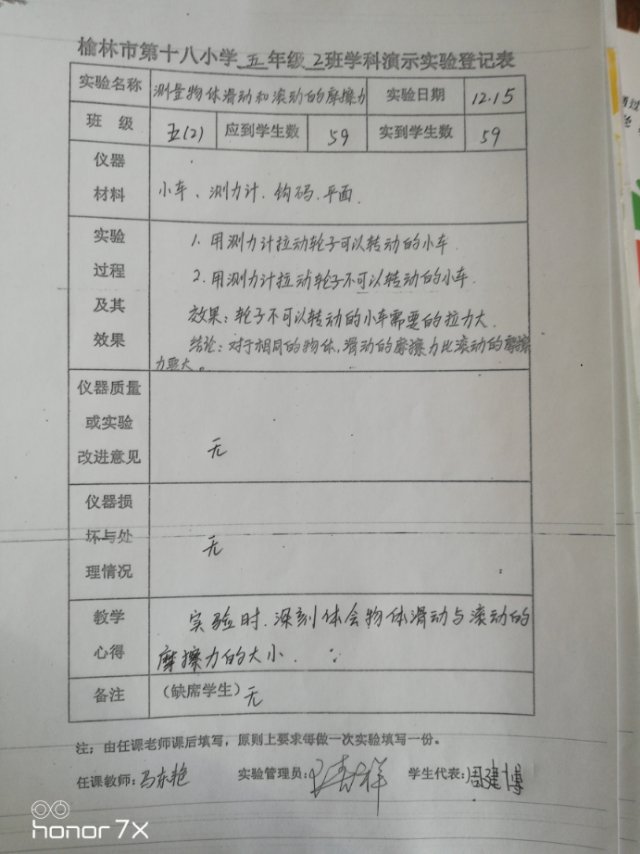 榆林市第十八小学五年级2班学科演示实验登记表
实验名称 测量物体滑动和滚动的摩擦力 实验日期 12.15
班级 五(2) 应到学生数 59 实到学生数 59
仪器
材料
小车、测力计.钩码.平面.
实验
过程
及其
效果
1.用测力计拉动轮子可以转动的小车.
2.用测力计拉动轮子不可以转动的小车.
效果:轮子不可以转动的小车需要的拉力大.
结论:对于相同的物体,滑动的摩擦力比滚动的摩擦
力要大。
仪器质量
或实验
改进意见
无
仪器损
坏与处
理情况
无
教学
心得
实验时.深刻体会物体滑动与滚动的
摩擦力的大小.
备注 (缺席学生)无
注:由任课老师课后填写,原则上要求每做一次实验填写一份。
任课教师:马东艳 实验管理员: 学生代表:周建博
honor 7X